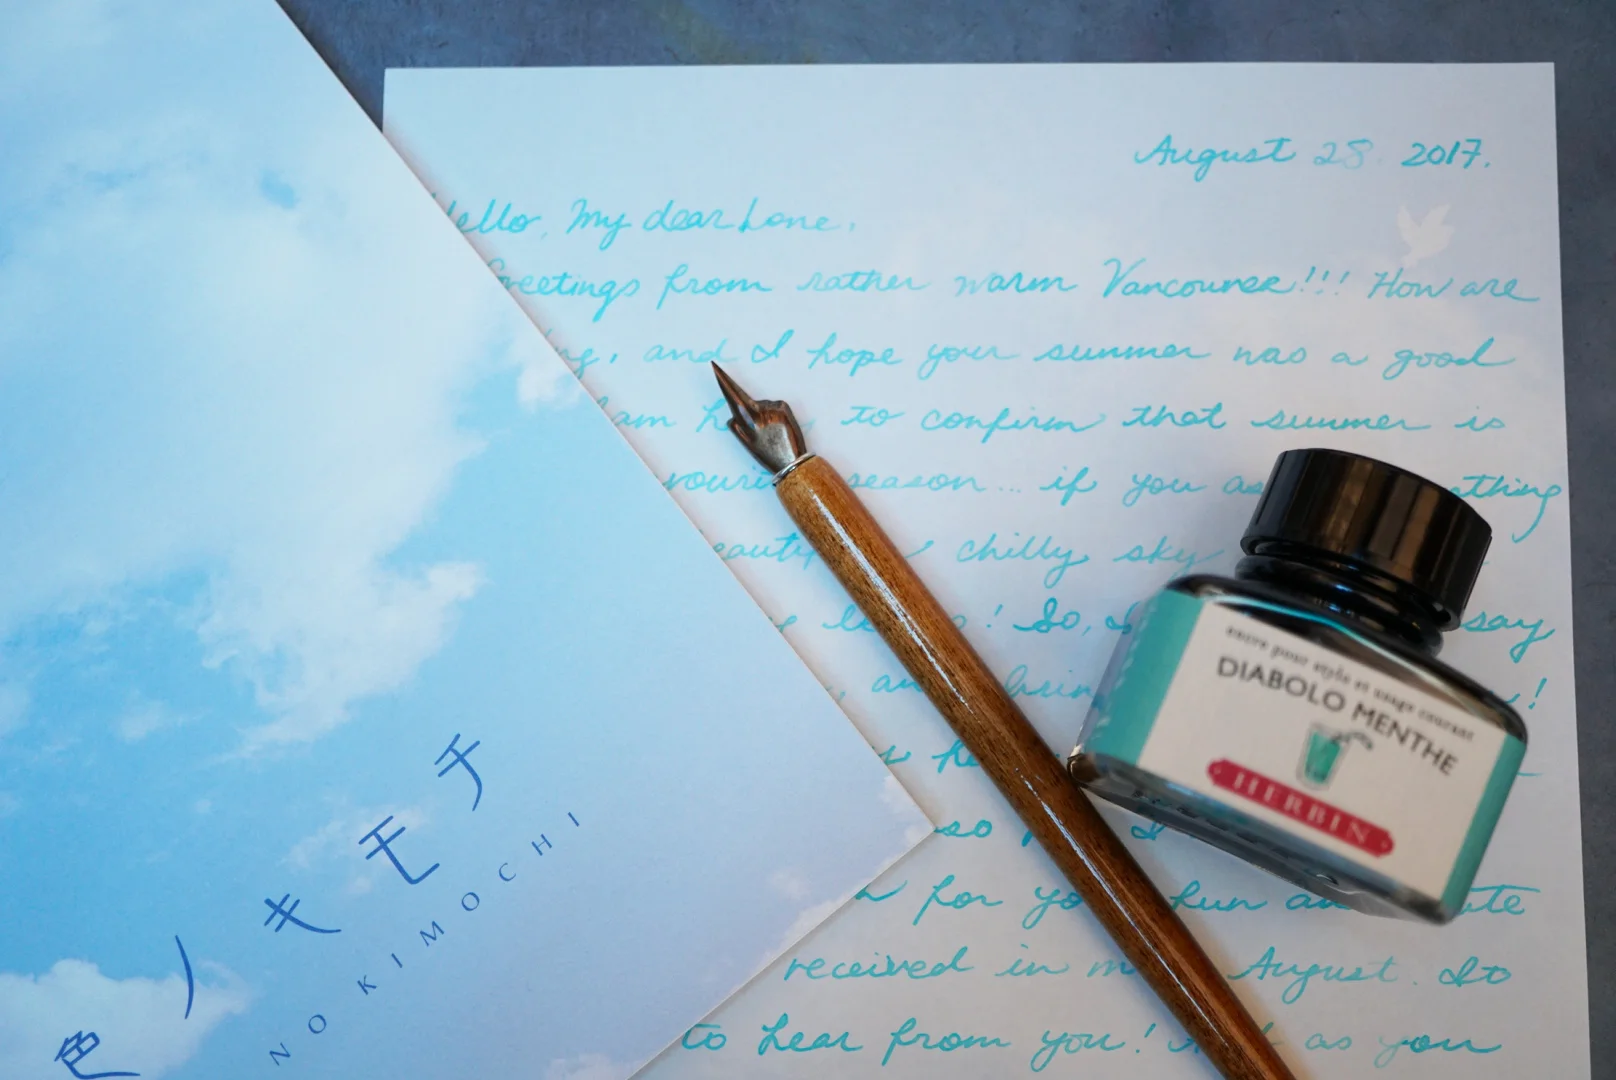 August 28. 2017.
ello, My dear Lone,
reetings from rather warm Vancouver!!! How are
ng, and I hope your summer was a good
am to confirm that summer is
season... if you as thing
chilly sky
! So, say
!
so I
for yo fun an
received in m August. It
to hear from you! as you
色ノキモチ
NO KIMOCHI
encre pour stylo et usage courant
DIABOLO MENTHE
HERBIN